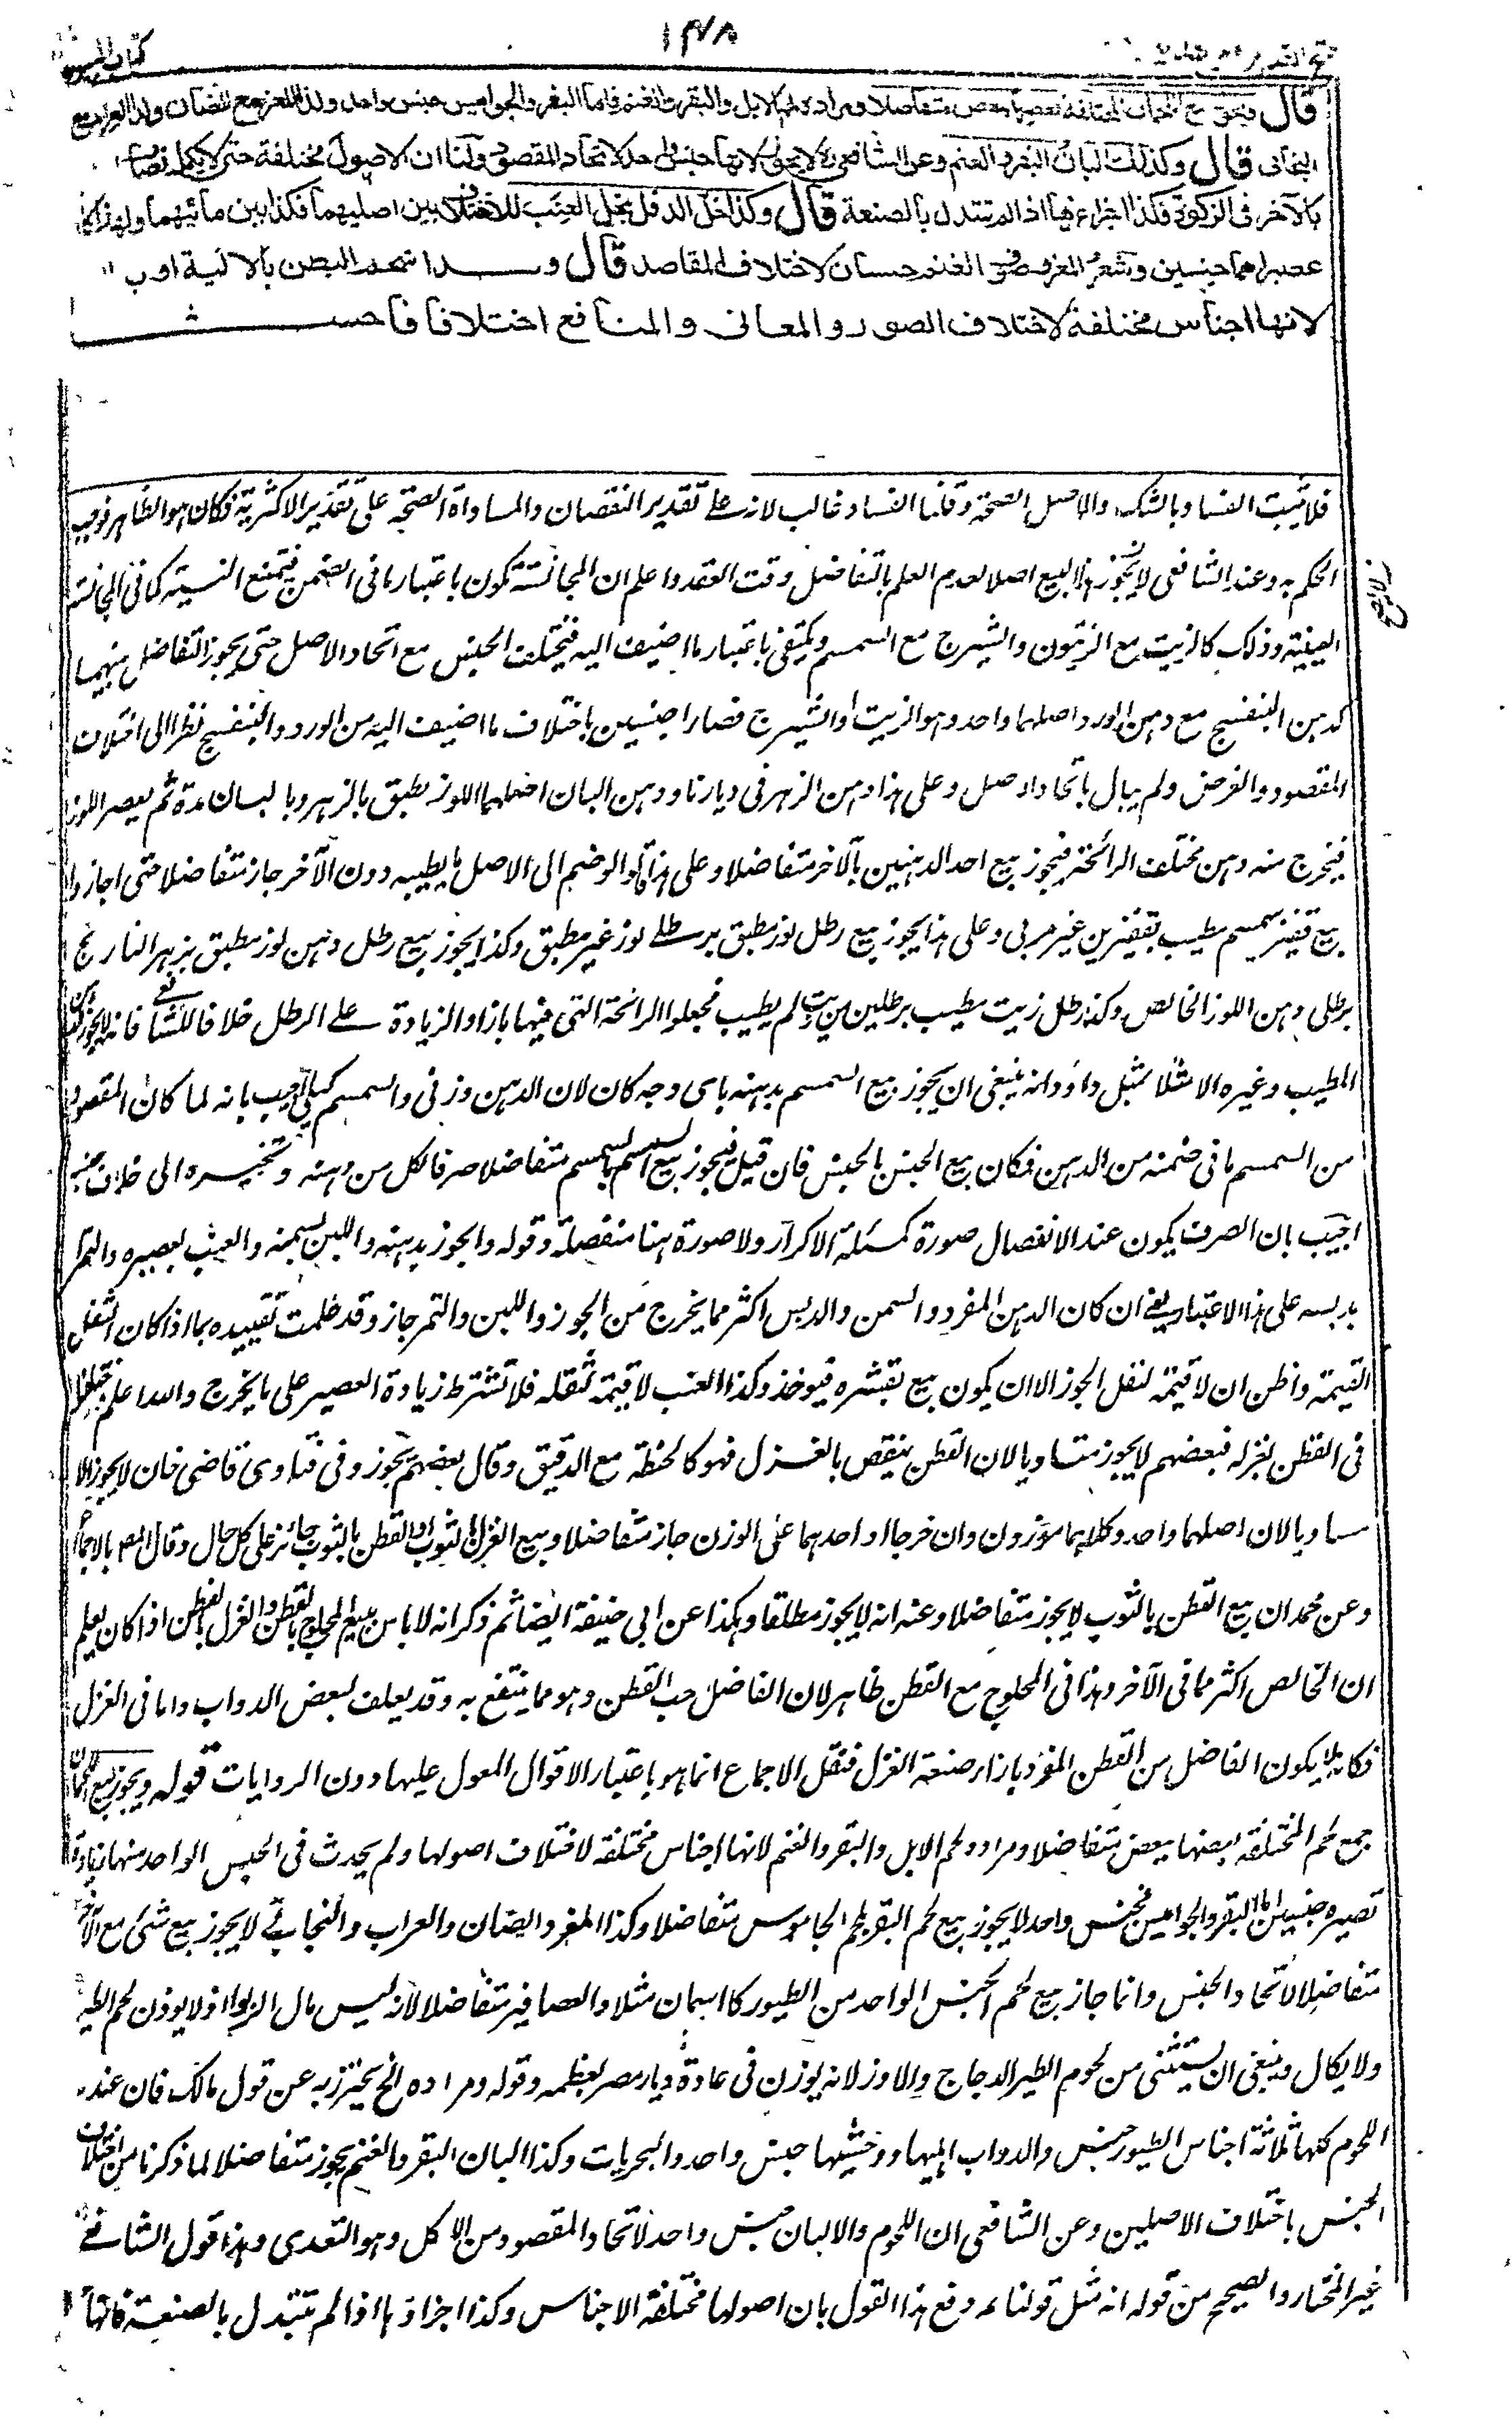 ١٣٧٨
كتاب البيوع
قال ويجوز بيع اللحمان المختلفة بعضها ببعض متفاضلا ومراده لحم الابل والبقر والغنم فاما البقر والجواميس جنس واحد وكذا المعز مع الضان وكذا العراب مع
البخاتى قال وكذلك البان البقر والغنم وعن الشافعى رح لا يجوز لانها جنس واحد لاتحاد المقصود ولنا ان الاصول مختلفة حتى لا يكمل نصاب
بالآخر فى الزكوة فكذا اجزاءها اذا لم تتبدل بالصنعة قال وكذا خل الدقل بخل العنب للاختلاف بين اصليهما فكذا بين مائيهما ولهذا كان
عصيراهما جنسين وشعر المعز وصوف الغنم جنسان لاختلاف المقاصد قال وكذا شحم البطن بالالية او ب
لانها اجناس مختلفة لاختلاف الصور والمعانى والمنافع اختلافا فاحشا
فلا يثبت الفساد بالشك والاصل الصحة وقلنا الفساد غالب لانه على تقدير النقصان والمساواة الصحة على تقدير الاكثرية فكان هو الظاهر فوجب
الحكم به وعند الشافعى لا يجوز هذا البيع اصلا لعدم العلم بالتفاضل وقت العقد واعلم ان المجانسة تكون باعتبار ما فى الضمن فيمتنع النسيئة كما فى المجانسة
العينية وذلك كالزيت مع الزيتون والشيرج مع السمسم ويكتفى باعتبار ما اضيف اليه فيختلف الجنس مع اتحاد الاصل حتى يجوز التفاضل بينهما
كدهن البنفسج مع دهن الورد اصلهما واحد وهو الزيت او الشيرج فصارا جنسين باختلاف ما اضيف اليه من الورد والبنفسج نظرا الى اختلاف
المقصود والغرض ولم يبال باتحاد الاصل وعلى هذا دهن الزهر فى ديارنا ودهن البان اصلهما اللوز يطبق بالزهر وبالبان مدة ثم يعصر اللوز
فيخرج منه دهن مختلف الرائحة فيجوز بيع احد الدهنين بالآخر متفاضلا وعلى هذا قالوا لو ضم الى الاصل ما يطيبه دون الآخر جاز متفاضلا حتى اجازوا
بيع قفيز سمسم مطيب بقفيزين غير مربى وعلى هذا يجوز بيع رطل لوز مطبق برطلى لوز غير مطبق وكذا يجوز بيع رطل دهن لوز مطبق بزهر النارنج
برطلى دهن اللوز الخالص وكذا رطل زيت مطيب برطلين من زيت لم يطيب فجعلوا الرائحة التى فيها بازاء الزيادة على الرطل خلافا للشافعى فانه لا يجوز
المطيب وغيره الا مثلا بمثل واورد انه ينبغى ان يجوز بيع السمسم بدهنه باى وجه كان لان الدهن وزنى والسمسم كيلى اجيب بانه لما كان المقصود
من السمسم ما فى ضمنه من الدهن فكان بيع الجنس بالجنس فان قيل فيجوز بيع السمسم بالسمسم متفاضلا صرفا لكل من دهنه وثجيره الى خلاف جنسه
اجيب بان الصرف يكون عند الانفصال صورة كمسئلة الاكرار ولا صورة هنا منفصلة وقوله والجوز بدهنه واللبن بسمنه والعنب بعصيره والتمر
بدبسه على هذا الاعتبار يعنى ان كان الدهن المفرد والسمن والدبس اكثر مما يخرج من الجوز واللبن والتمر جاز وقد علمت تقييده بما اذا كان الثفل
القيمة واظن ان لا قيمة لثفل الجوز الا ان يكون بيع بقشره فيوخذ وكذا العنب لا قيمة لثفله فلا تشترط زيادة العصير على ما يخرج والله اعلم واختلفوا
فى القطن بغزله فبعضهم لا يجوز متساويا لان القطن ينقص بالغزل فهو كالحنطة مع الدقيق وقال بعضهم يجوز وفى فتاوى قاضى خان لا يجوز الا
متساويا لان اصلهما واحد وكلاهما موزون وان خرجا او احدهما عن الوزن جاز متفاضلا وبيع الغزل بالثوب والقطن بالثوب جائز على كل حال وقال المص بالاجماع
وعن محمد ان بيع القطن بالثوب لا يجوز متفاضلا وعنه انه لا يجوز مطلقا وهكذا عن ابى حنيفة ايضا ثم ذكر انه لا باس ببيع المحلوج بالقطن والغزل بالقطن اذا كان يعلم
ان الخالص اكثر مما فى الآخر وهذا فى المحلوج مع القطن ظاهر لان الفاضل حب القطن وهو مما ينتفع به وقد يعلف لبعض الدواب واما فى الغزل
فكانه يكون الفاضل من القطن المفرد بازاء صنعة الغزل فنقل الاجماع انما هو باعتبار الاقوال المعول عليها دون الروايات قوله ويجوز بيع اللحمان
جمع لحم المختلفة بعضها ببعض متفاضلا ومراده لحم الابل والبقر والغنم لانها اجناس مختلفة لاختلاف اصولها ولم يحدث فى الجنس الواحد منها زيادة
تصيره جنسين اما البقر والجواميس فجنس واحد لا يجوز بيع لحم البقر بلحم الجاموس متفاضلا وكذا المعز والضان والعراب والبخاتى لا يجوز بيع شئ مع الآخر
متفاضلا لاتحاد الجنس وانما جاز بيع لحم الجنس الواحد من الطيور كالسمان مثلا والعصافير متفاضلا لانه ليس مال الربوا اذ لا يوزن لحم الطير
ولا يكال وينبغى ان يستثنى من لحوم الطير الدجاج والاوز لانه يوزن فى عادة ديار مصر بعظمه وقوله ومراده الخ يحترز به عن قول مالك فان عنده
اللحوم كلها ثلاثة اجناس الطيور جنس والدواب اهليها ووحشيها جنس واحد والبحريات وكذا البان البقر والغنم يجوز متفاضلا لما ذكرنا من اختلاف
الجنس باختلاف الاصلين وعن الشافعى ان اللحوم والالبان جنس واحد لاتحاد المقصود من الاكل وهو التغذى وهذا قول الشافعى
غير المختار والصحيح من قوله انه مثل قولنا دفع هذا القول بان اصولها مختلفة الاجناس وكذا اجزاؤها اذا لم تتبدل بالصنعة فانها